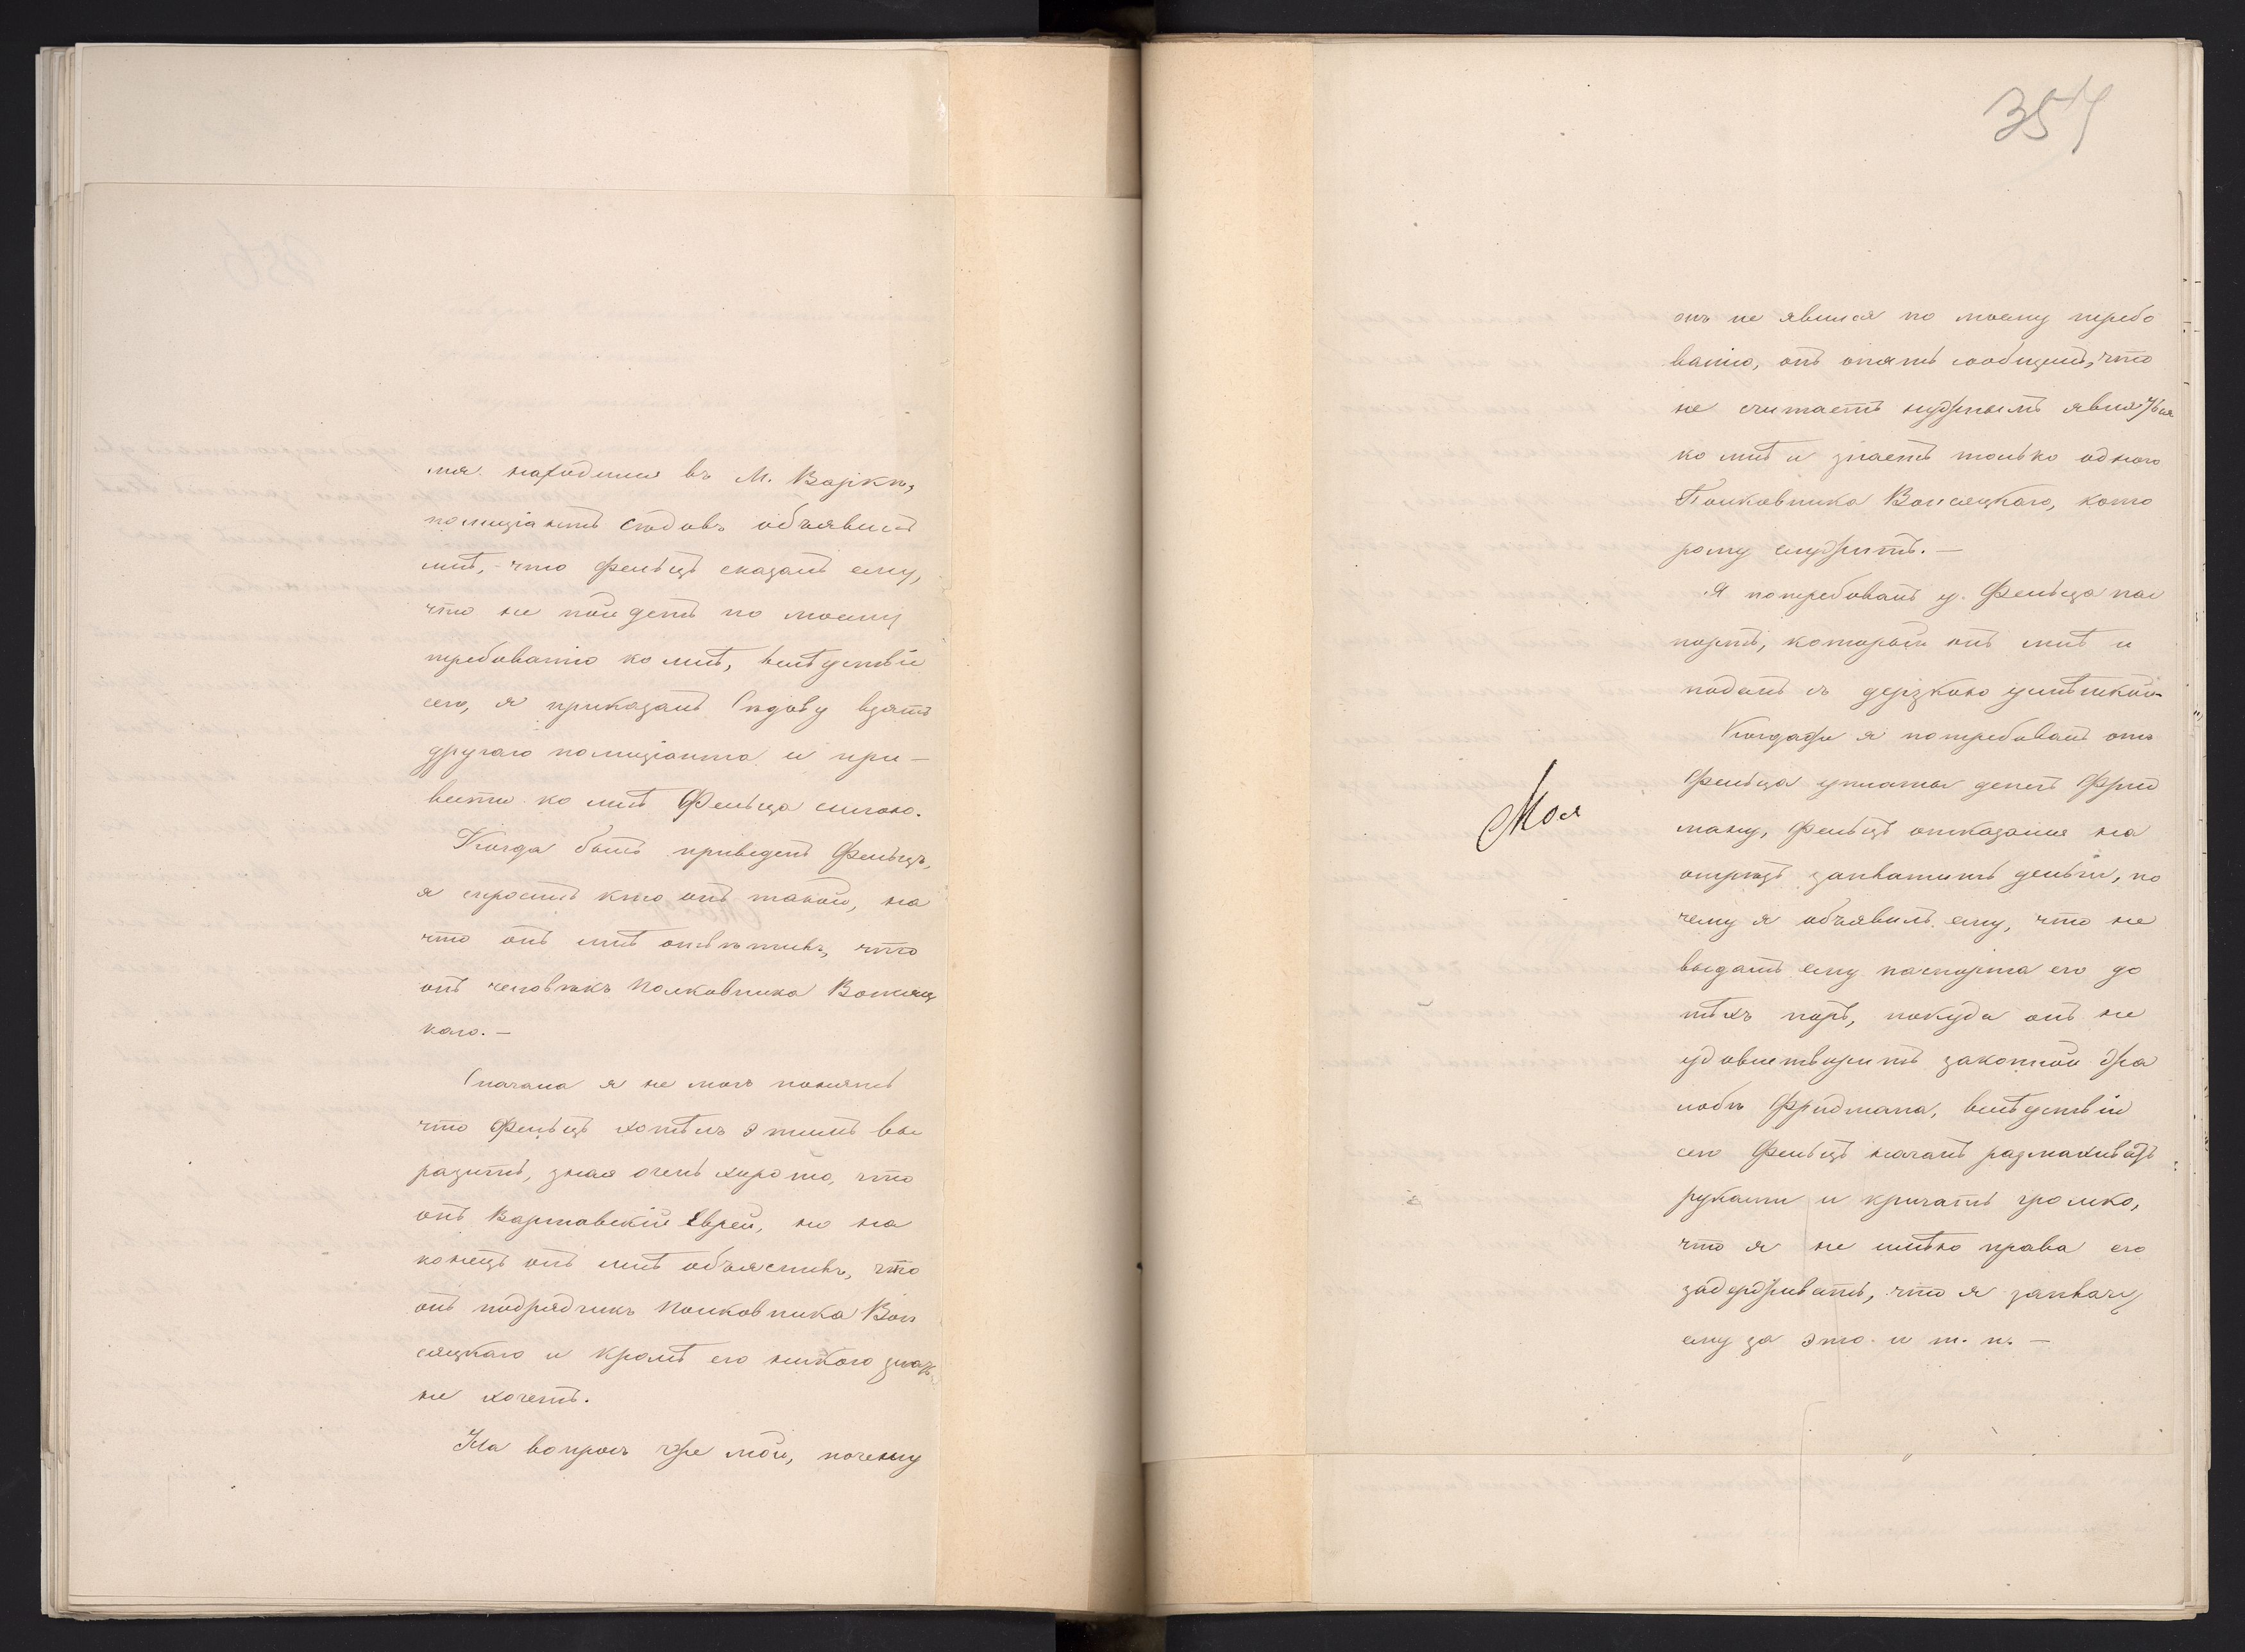 мя находился въ М. Варкѣ,
полиціантъ Сѣдовъ объявилъ
мнѣ, что Фельцъ сказалъ ему,
что не пойдетъ по моему
требованію ко мнѣ, вслѣдствіе
сего, я приказалъ Сѣдову взять
другаго полиціанта и при-
вести ко мнѣ Фельца силою.
Когда былъ приведенъ Фельцъ,
я спросилъ кто онъ такой, на
что онъ мнѣ отвѣтилъ, что
онъ человѣкъ Полковника Вонсяц
каго. —
Сначала я не могъ понять
что Фельцъ хотѣлъ этимъ вы
разить, зная очень хорошо, что
онъ Варшавскій Еврей, но на
конецъ онъ мнѣ объяснилъ, что
онъ подрядчикъ Полковника Вон
сяцкаго и кромѣ его никого знать
не хочетъ.
На вопросъ же мой, почему
357
онъ не явился по моему требо
ванію, онъ опять сообщилъ, что
не считаетъ нужнымъ являться
ко мнѣ и знаетъ только одного
Полковника Вонсяцкаго, кото
рому служитъ. —
Я потребовалъ у Фельца пас
портъ, который онъ мнѣ и
подалъ съ дерзкою усмѣшкой
Когда же я потребовалъ отъ
Фельца уплаты денегъ Фрид
ману, Фельцъ отказался на
отрѣзъ заплатить деньги, по
чему я объявилъ ему, что не
выдамъ ему паспорта его до
тѣхъ поръ, покуда онъ не
удовлетворитъ законной жа
лобѣ Фридмана, вслѣдствіе
сего Фельцъ началъ размахивать
руками и кричать громко,
что я не имѣю права его
задерживать, что я заплачу
ему за это и т. п. —
Моя